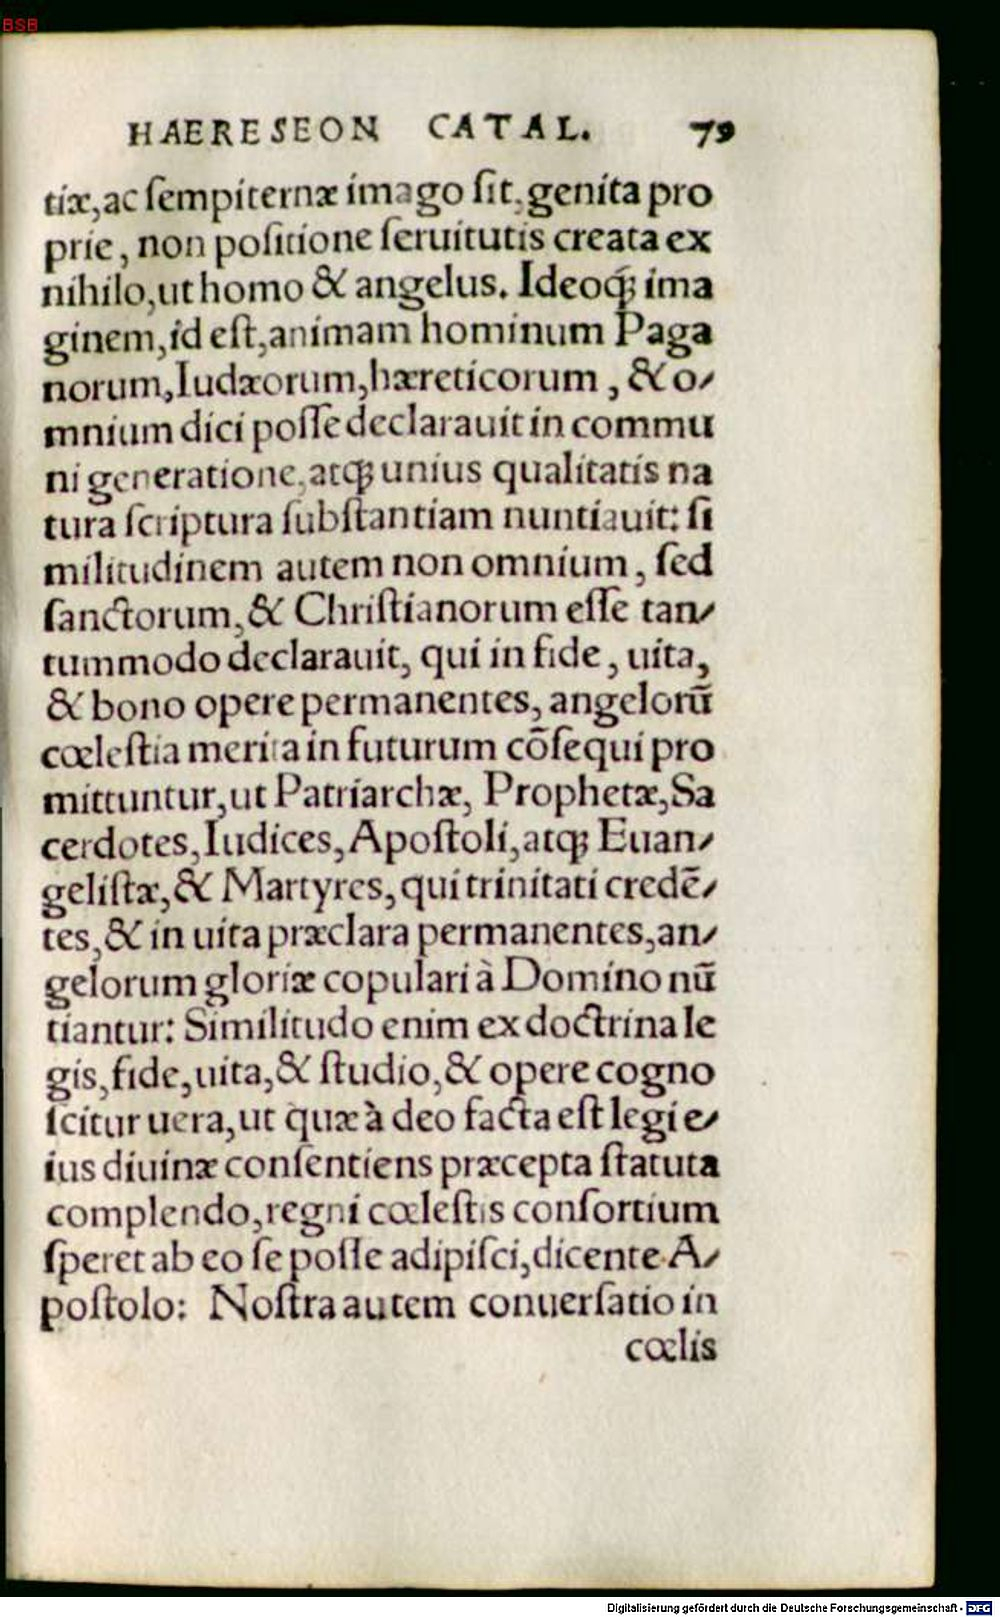 BSB
HAERESEON CATAL. 79
tiæ, ac ſempiternæ imago ſit, genita pro
prie, non poſitione ſeruitutis creata ex
nihilo, ut homo & angelus. Ideoq́; ima
ginem, id eſt, animam hominum Paga
norum, Iudæorum, hæreticorum, & o-
mnium dici poſſe declarauit in commu
ni generatione, atq; unius qualitatis na
tura ſcriptura ſubſtantiam nuntiauit: ſi
militudinem autem non omnium, ſed
ſanctorum, & Chriſtianorum eſſe tan-
tummodo declarauit, qui in fide, uita,
& bono opere permanentes, angelorū
cœleſtia merita in futurum cōſequi pro
mittuntur, ut Patriarchæ, Prophetæ, Sa
cerdotes, Iudices, Apoſtoli, atq; Euan-
geliſtæ, & Martyres, qui trinitati credē-
tes, & in uita præclara permanentes, an-
gelorum gloriæ copulari à Domino nū
tiantur: Similitudo enim ex doctrina le
gis, fide, uita, & ſtudio, & opere cogno
ſcitur uera, ut quæ à deo facta eſt legi e-
ius diuinæ conſentiens præcepta ſtatuta
complendo, regni cœleſtis conſortium
ſperet ab eo ſe poſſe adipiſci, dicente A-
poſtolo: Noſtra autem conuerſatio in
cœlis
Digitalisierung gefördert durch die Deutsche Forschungsgemeinschaft - DFG